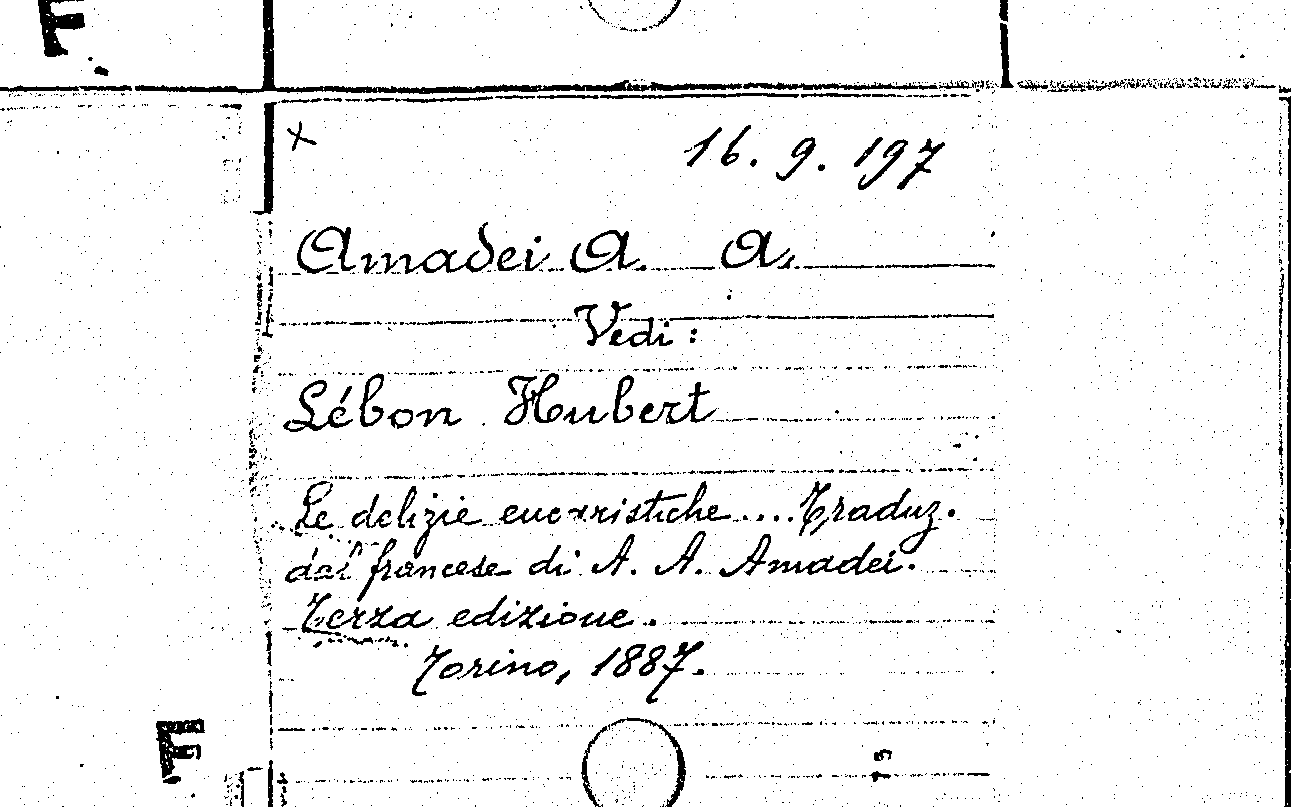 16. 9. 197
Amadei A. A.
Vedi:
Lébon Hubert
Le delizie eucaristiche .... Traduz.
dal francese di A. A. Amadei.
Terza edizione.
Torino, 1887.